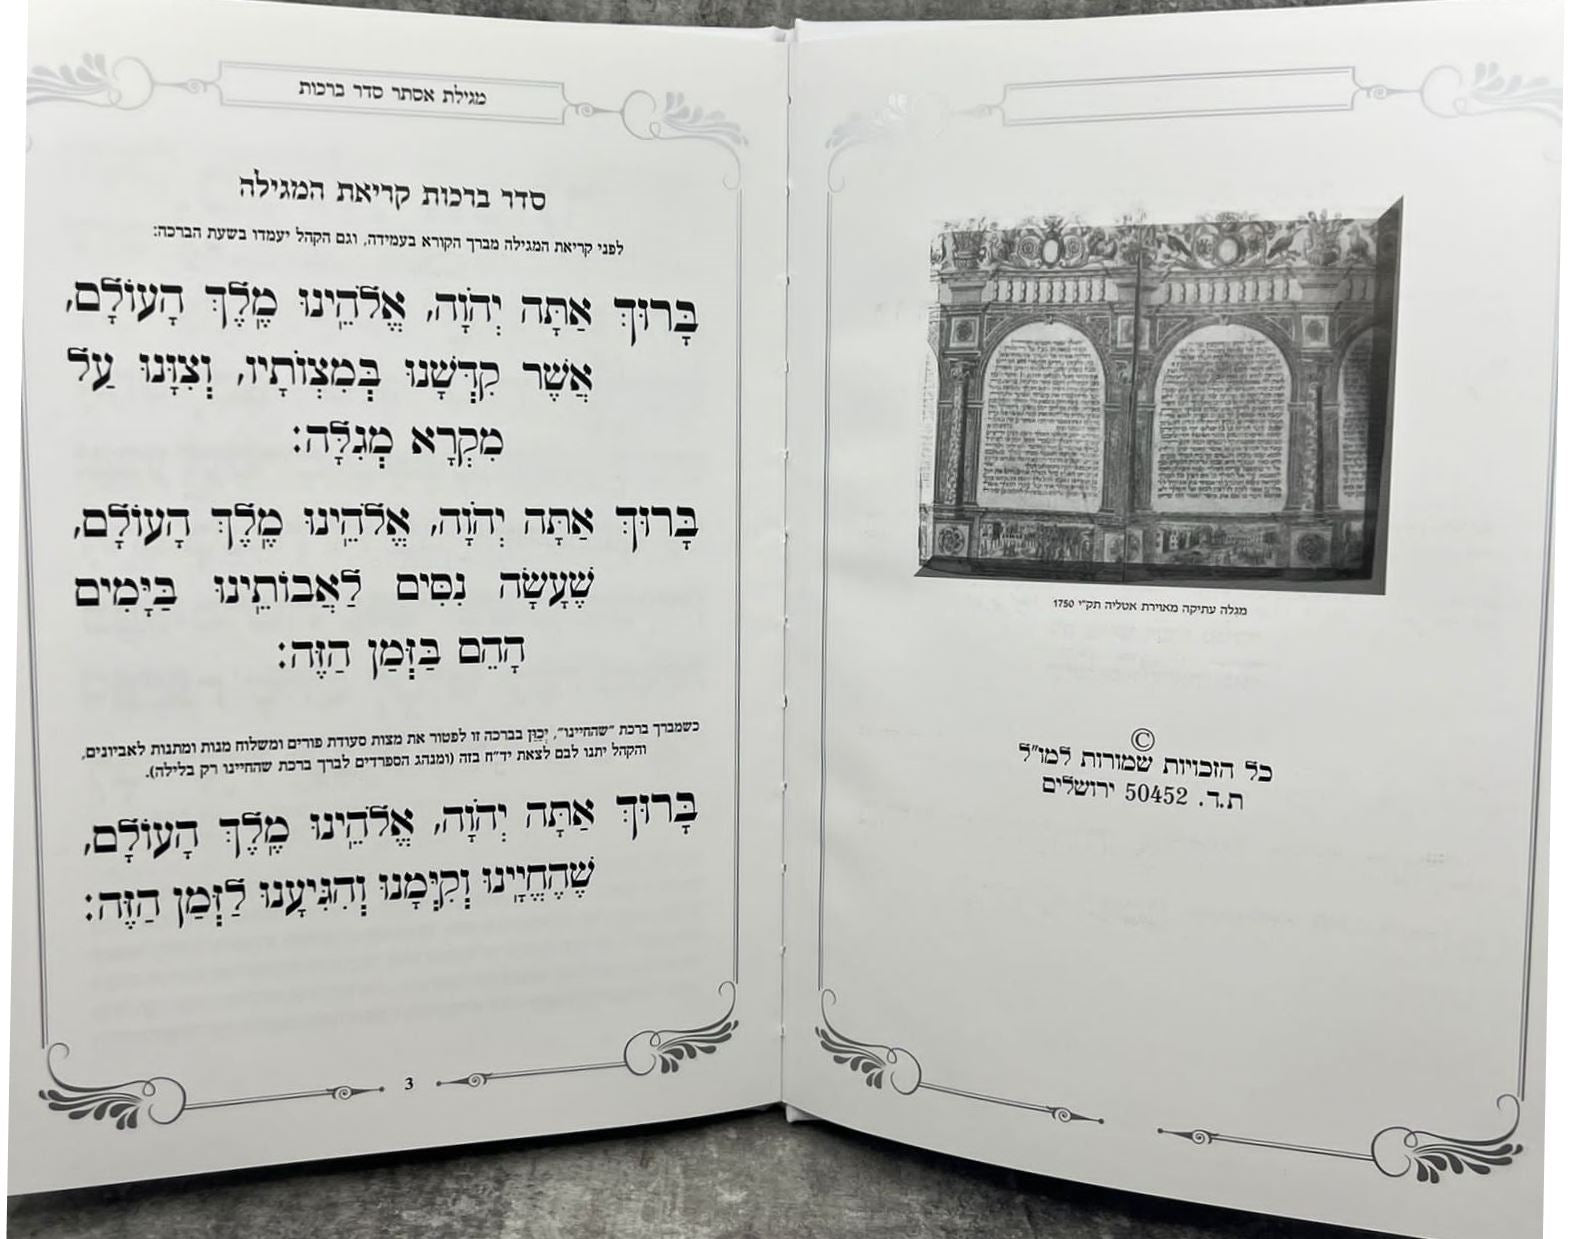 מגלה עתיקה מאוירת אטליה תק"י 1750
©
כל הזכויות שמורות למו"ל
ת.ד. 50452 ירושלים
מגילת אסתר סדר ברכות
סדר ברכות קריאת המגילה
לפני קריאת המגילה מברך הקורא בעמידה, וגם הקהל יעמדו בשעת הברכה:
בָּרוּךְ אַתָּה יְהֹוָה, אֱלֹהֵינוּ מֶלֶךְ הָעוֹלָם,
אֲשֶׁר קִדְּשָׁנוּ בְּמִצְוֹתָיו, וְצִוָּנוּ עַל
מִקְרָא מְגִלָּה:
בָּרוּךְ אַתָּה יְהֹוָה, אֱלֹהֵינוּ מֶלֶךְ הָעוֹלָם,
שֶׁעָשָׂה נִסִּים לַאֲבוֹתֵינוּ בַּיָּמִים
הָהֵם בַּזְּמַן הַזֶּה:
כשמברך ברכת "שהחיינו", יְכַוֵּן בברכה זו לפטור את מצות סעודת פורים ומשלוח מנות ומתנות לאביונים,
והקהל יתנו לבם לצאת יד"ח בזה (ומנהג הספרדים לברך ברכת שהחיינו רק בלילה).
בָּרוּךְ אַתָּה יְהֹוָה, אֱלֹהֵינוּ מֶלֶךְ הָעוֹלָם,
שֶׁהֶחֱיָינוּ וְקִיְּמָנוּ וְהִגִּיעָנוּ לַזְּמַן הַזֶּה:
3